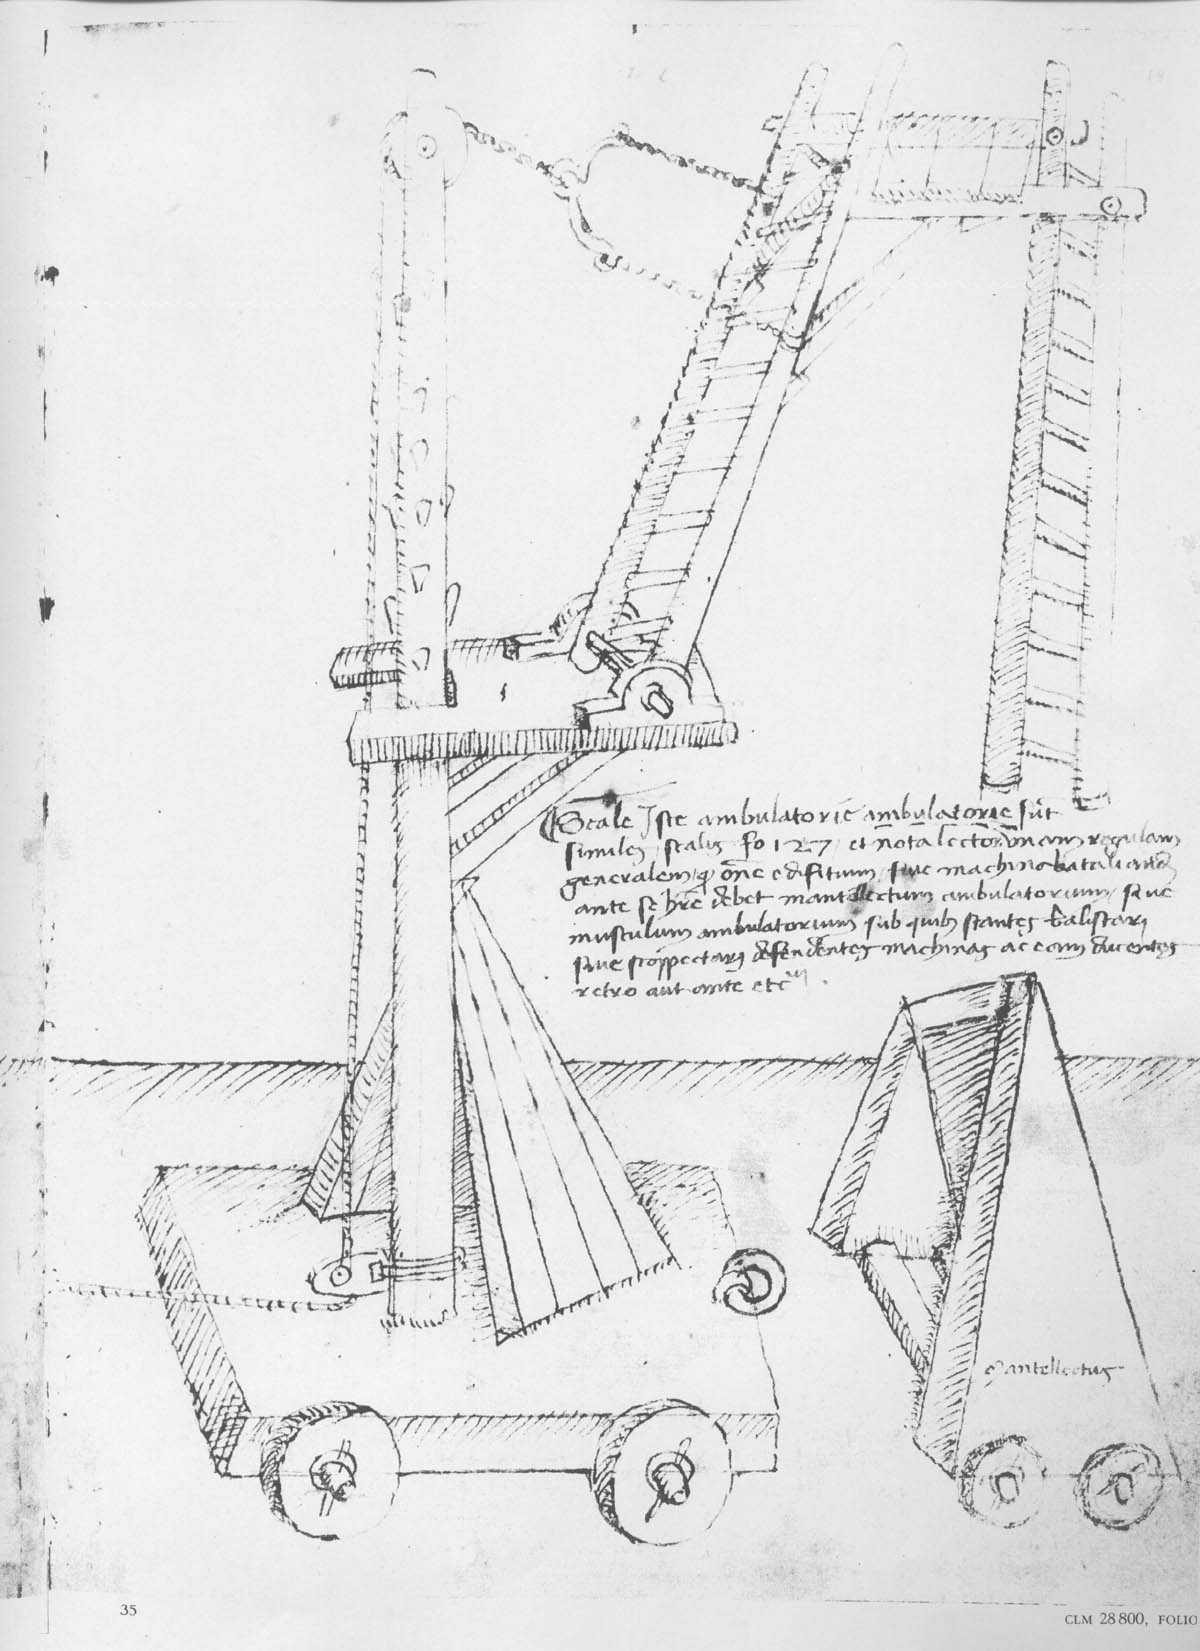 Scale Iste ambulatorie ambulatorie sūt
similes scalis fo 127 et nota lector unam regulam
generalem, oñe edifitium, sive machina batali
ante se hr̄e debet mantellectum ambulatorium, sive
musculum ambulatorium sub quibꝫ stantes balistari
sive scoppectarij defendentes machinas ac eam ducentes
retro aut ante etc
Mantellectus
35
CLM 28 800, FOLIO